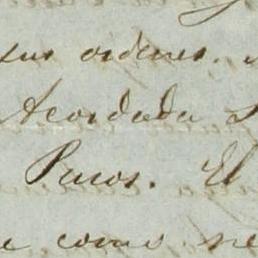 sus ordenes.
Acordada
Pucos. El
como se